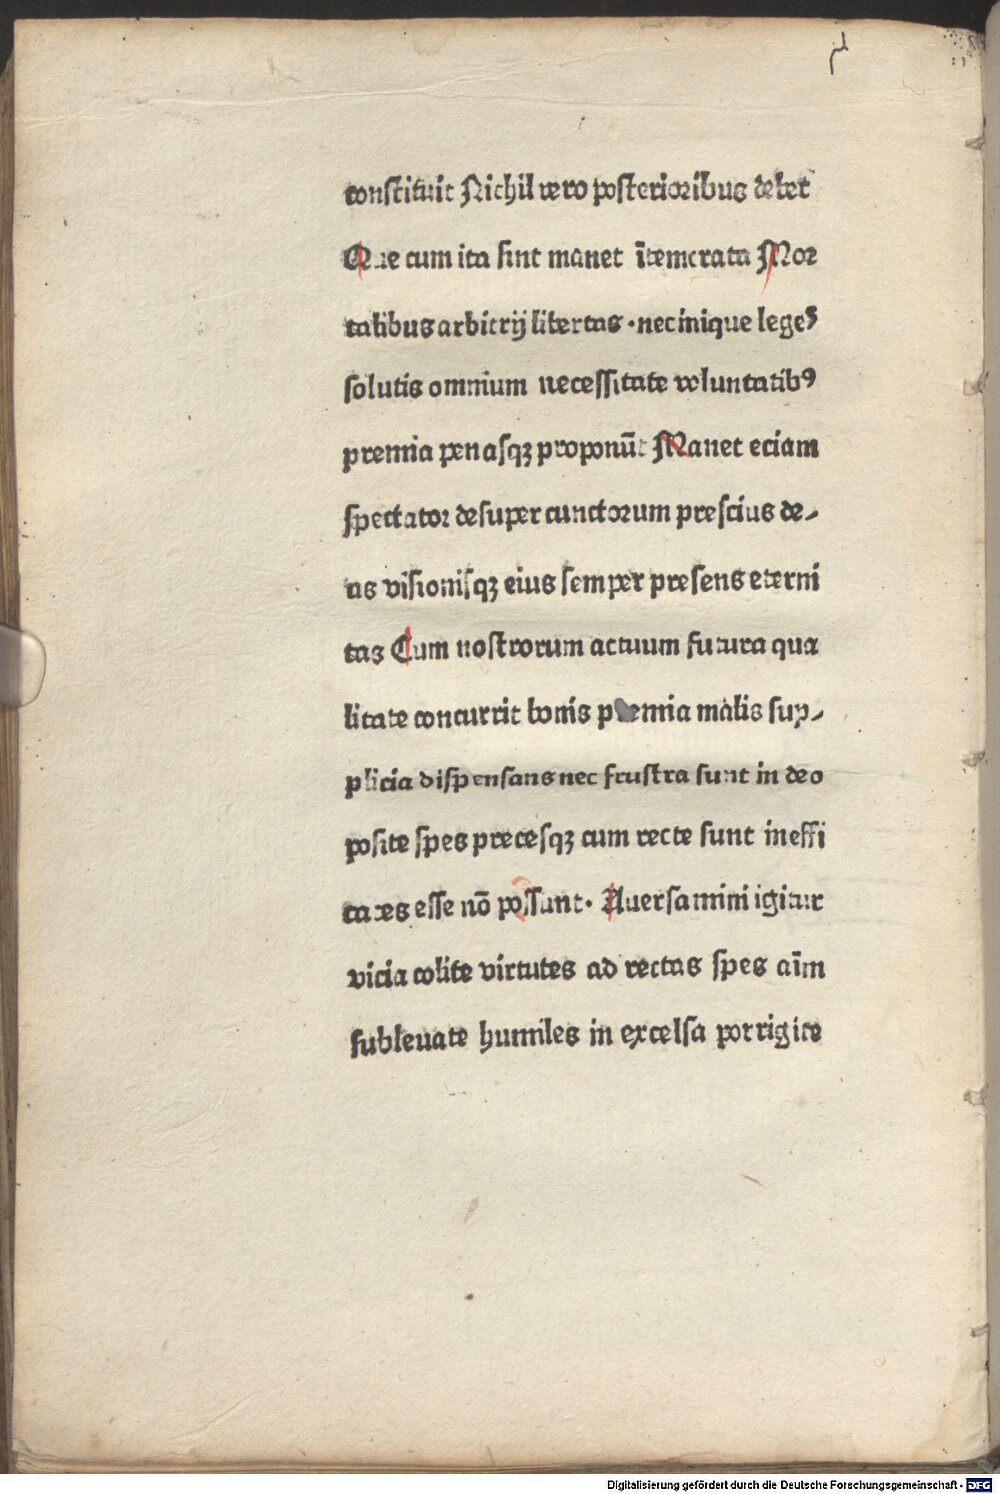 constituit Nichil vero posterioribus debet
Que cum ita sint manet ītemerata Mor
talibus arbitrij libertas · nec inique leges
solutis omnium necessitate voluntatibꝰ
premia penasqꝫ proponūt Manet eciam
spectator desuper cunctorum prescius de-
us visionisqꝫ eius semper presens eterni
tas Cum nostrorum actuum futura qua
litate concurrit bonis premia malis sup-
plicia dispensans nec frustra sunt in deo
posite spes precesqꝫ cum recte sunt ineffi
caces esse nō possunt · Auersamini igitur
vicia colite virtutes ad rectas spes aīm
subleuate humiles in excelsa porrigite
Digitalisierung gefördert durch die Deutsche Forschungsgemeinschaft - DFG